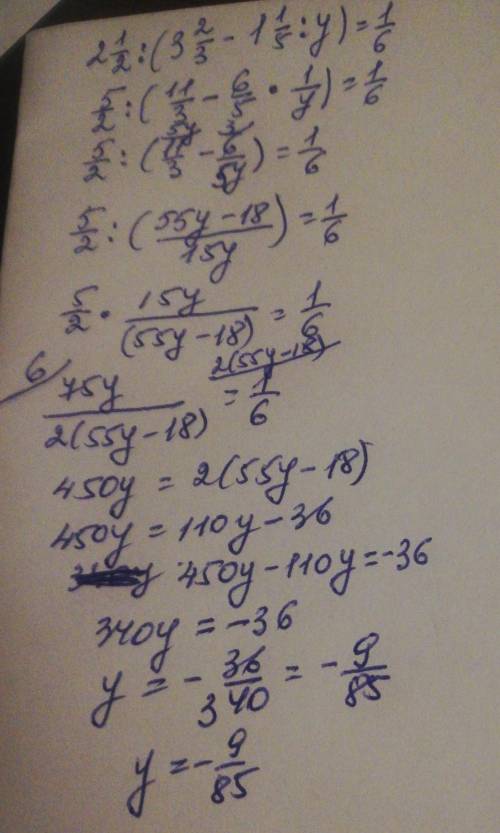 2 1/2 : (3 2/3 - 1 1/5 : y) = 1/6
5/2 : (11/3 - 6/5 · 1/y) = 1/6
5/2 : (11/3 - 6/5y) = 1/6
5/2 : ((55y - 18)/15y) = 1/6
5/2 · 15y/(55y - 18) = 1/6
6/ 75y/2(55y - 18) = 1/6 2(55y - 18)/
450y = 2(55y - 18)
450y = 110y - 36
450y - 110y = -36
340y = -36
y = - 36/340 = - 9/85
y = - 9/85